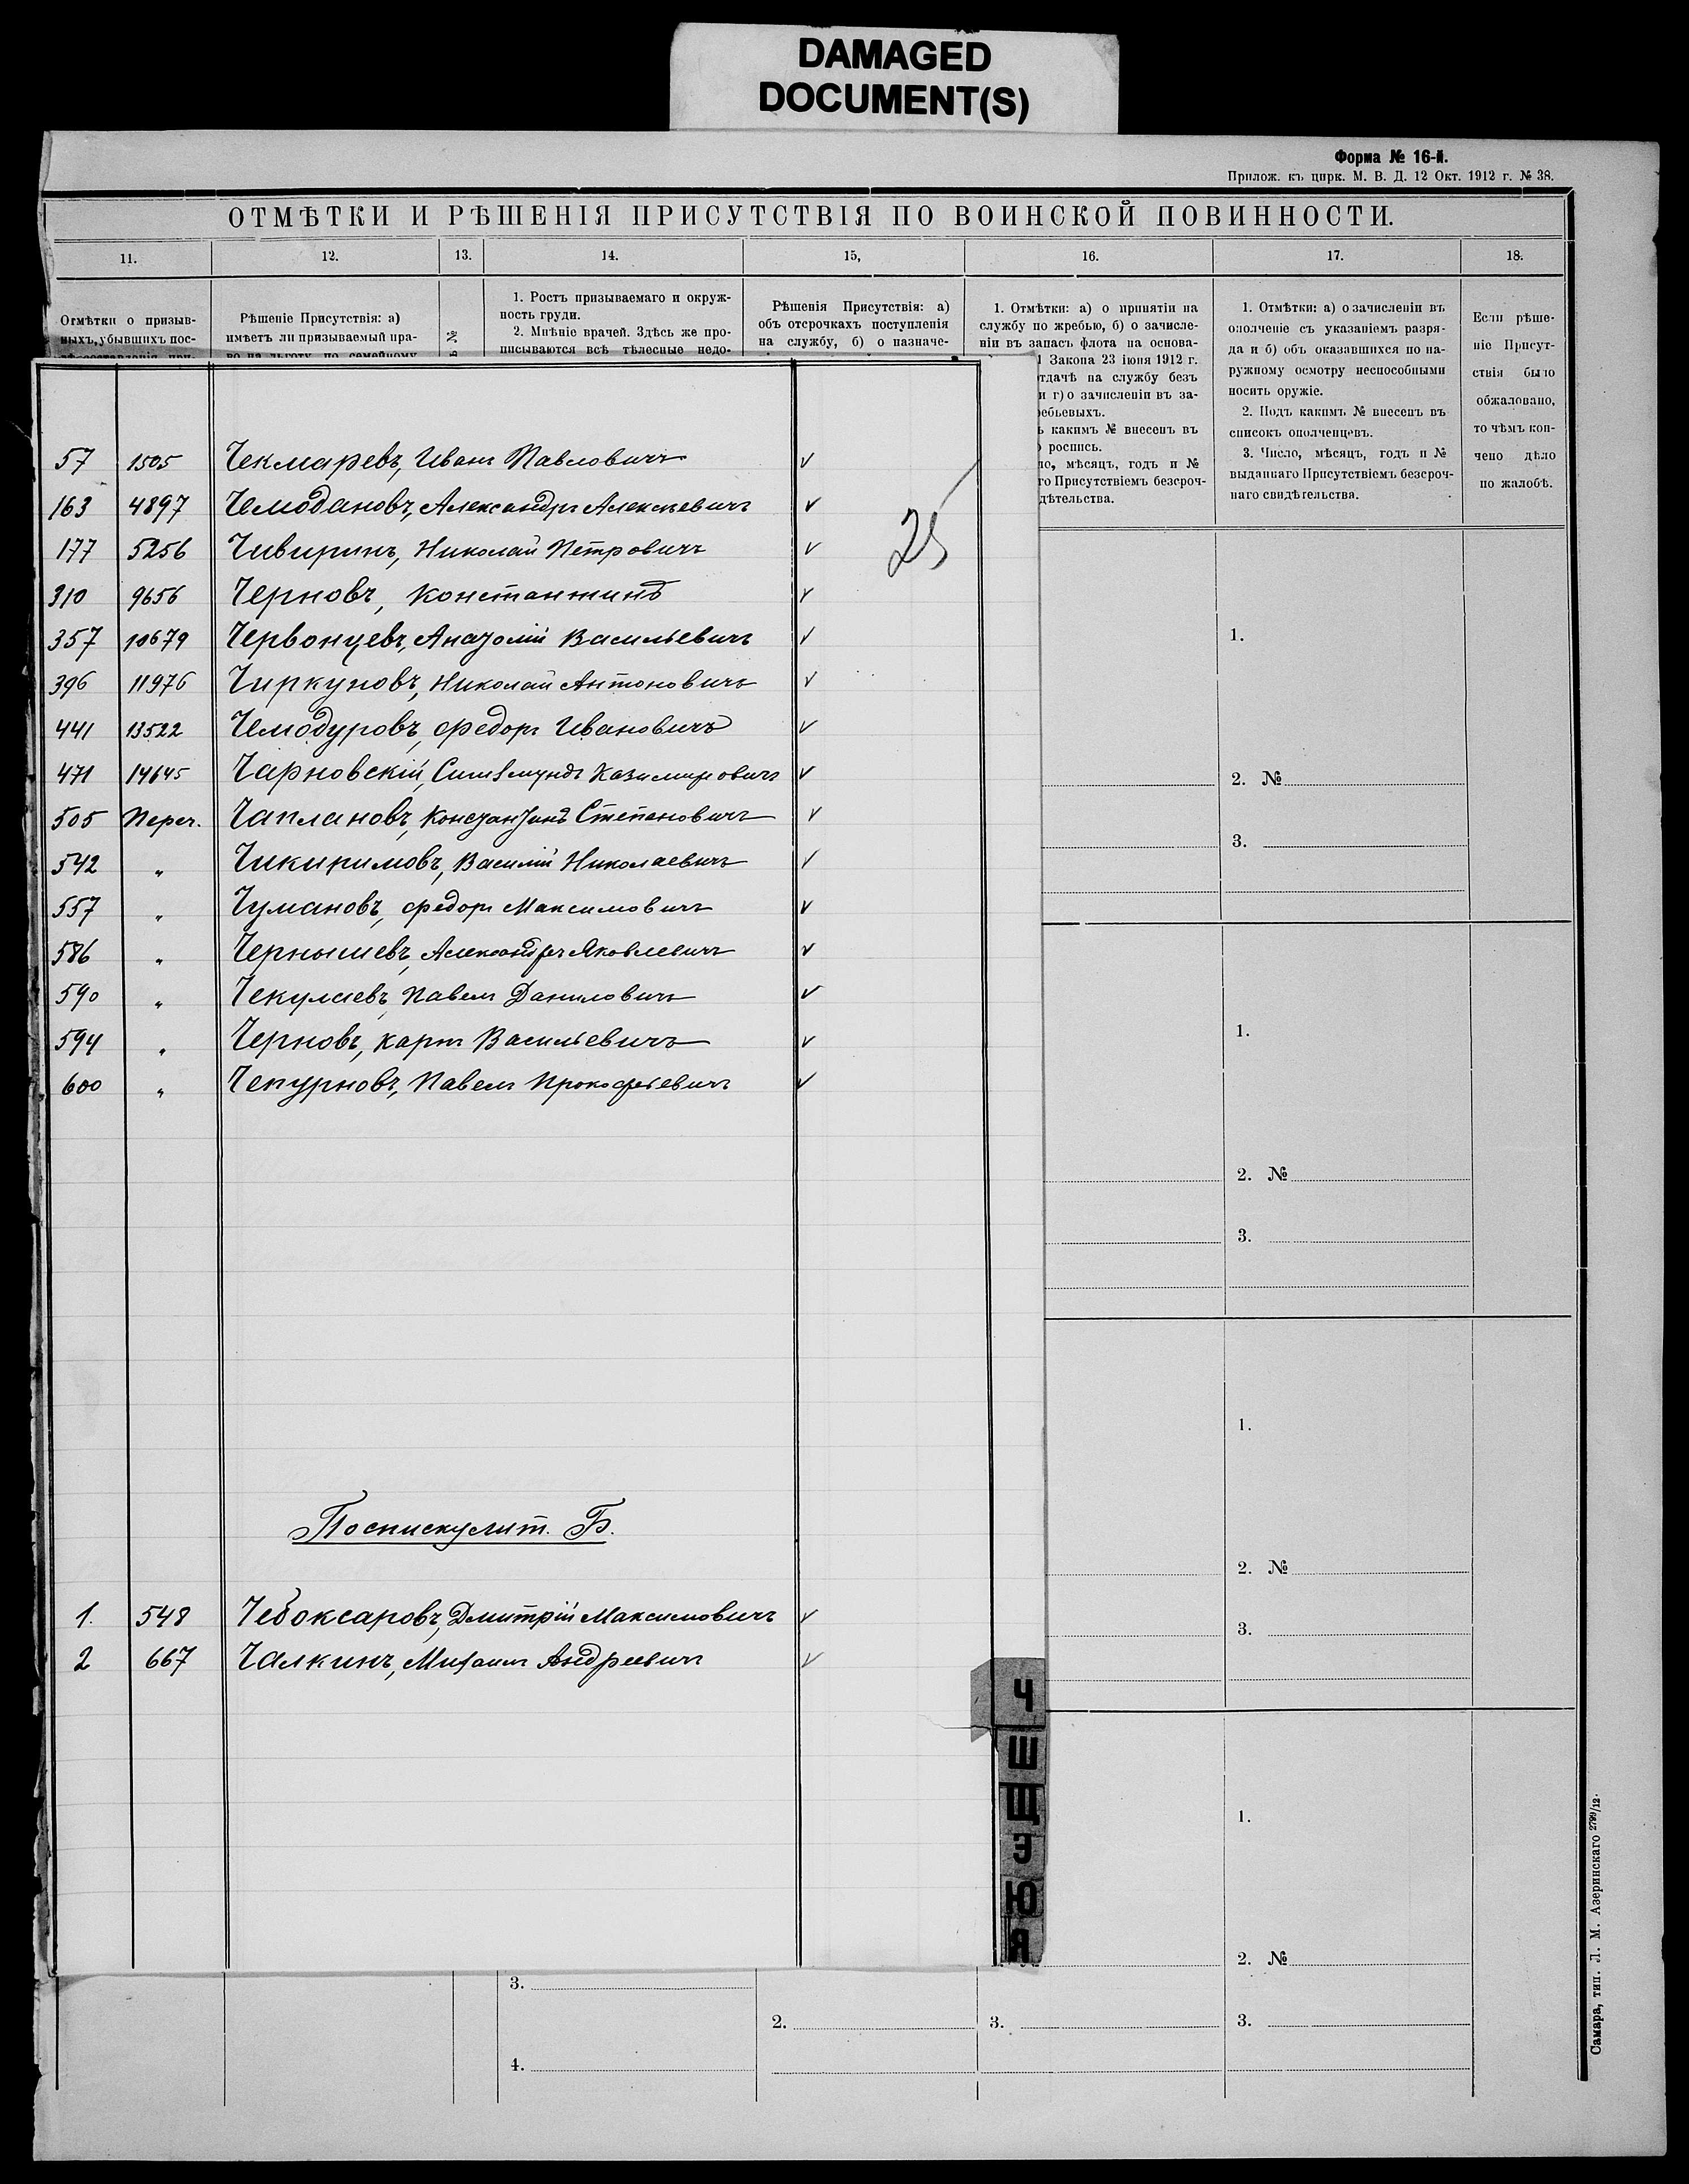 DAMAGED
DOCUMENT(S)
Форма № 16-й.
Прилож. къ цирк. М. В. Д. 12 Окт. 1912 г. № 38.
ОТМѢТКИ И РѢШЕНІЯ ПРИСУТСТВІЯ ПО ВОИНСКОЙ ПОВИННОСТИ.
11. 12. 13. 14. 15, 16. 17. 18.
Отмѣтки о призыв-
ныхъ, убывшихъ пос-
Рѣшеніе Присутствія: а)
имѣетъ ли призываемый пра-
во на льготу по семейному
№
1. Ростъ призываемаго и окруж-
ность груди.
2. Мнѣніе врачей. Здѣсь же про-
писываются всѣ тѣлесные недо-
Рѣшенія Присутствія: а)
объ отсрочкахъ поступленія
на службу, б) о назначе-
1. Отмѣтки: а) о принятіи на
службу по жребью, б) о зачисле-
ніи въ запасъ флота на основа-
Закона 23 іюня 1912 г.
тдачѣ на службу безъ
и г) о зачисленіи въ за-
ребьевыхъ.
ь какимъ № внесенъ въ
роспись.
ло, мѣсяцъ, годъ и №
го Присутствіемъ безсроч-
дѣтельства.
1. Отмѣтки: а) о зачисленіи въ
ополченіе съ указаніемъ разря-
да и б) объ оказавшихся по на-
ружному осмотру неспособными
носить оружіе.
2. Подъ какимъ № внесенъ въ
списокъ ополченцевъ.
3. Число, мѣсяцъ, годъ и №
выданнаго Присутствіемъ безсроч-
наго свидѣтельства.
Если рѣше-
ніе Присут-
ствія было
обжаловано,
то чѣмъ кон-
чено дѣло
по жалобѣ.
57 1505 Чекмаревъ, Иванъ Павловичъ
163 4897 Чемодановъ, Александръ Алексѣевичъ
177 5256 Чивиринъ, Николай Петровичъ
25
310 9656 Черновъ, Константинъ
357 10679 Червонцевъ, Анатолій Васильевичъ
396 11976 Чиркуновъ, Николай Антоновичъ
441 13522 Чемодуровъ, Федоръ Ивановичъ
471 14645 Чарновскій, Сигизмундъ Казимировичъ
505 Переч. Чаплановъ, Константинъ Степановичъ
542 " Чикиримовъ, Василій Николаевичъ
557 " Чумановъ, Федоръ Максимовичъ
586 " Чернышевъ, Александръ Яковлевичъ
590 " Чекулаевъ, Павелъ Даниловичъ
594 " Черновъ, Карпъ Васильевичъ
600 " Чепурновъ, Павелъ Прокофьевичъ
По списку лит. Б.
1. 548 Чебоксаровъ, Дмитрій Максимовичъ
2 667 Чалкинъ, Михаилъ Андреевичъ
Ч
Ш
Щ
Э
Ю
Я
1.
2. №
3.
1.
2. №
3.
1.
2. №
3.
1.
2. №
3.
2. 3. 3.
4.
Самара, тип. Л. М. Азеринскаго 2799/12.